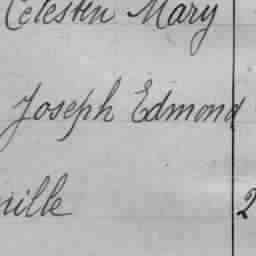 Celestin Mary
Joseph Edmond
ville 2